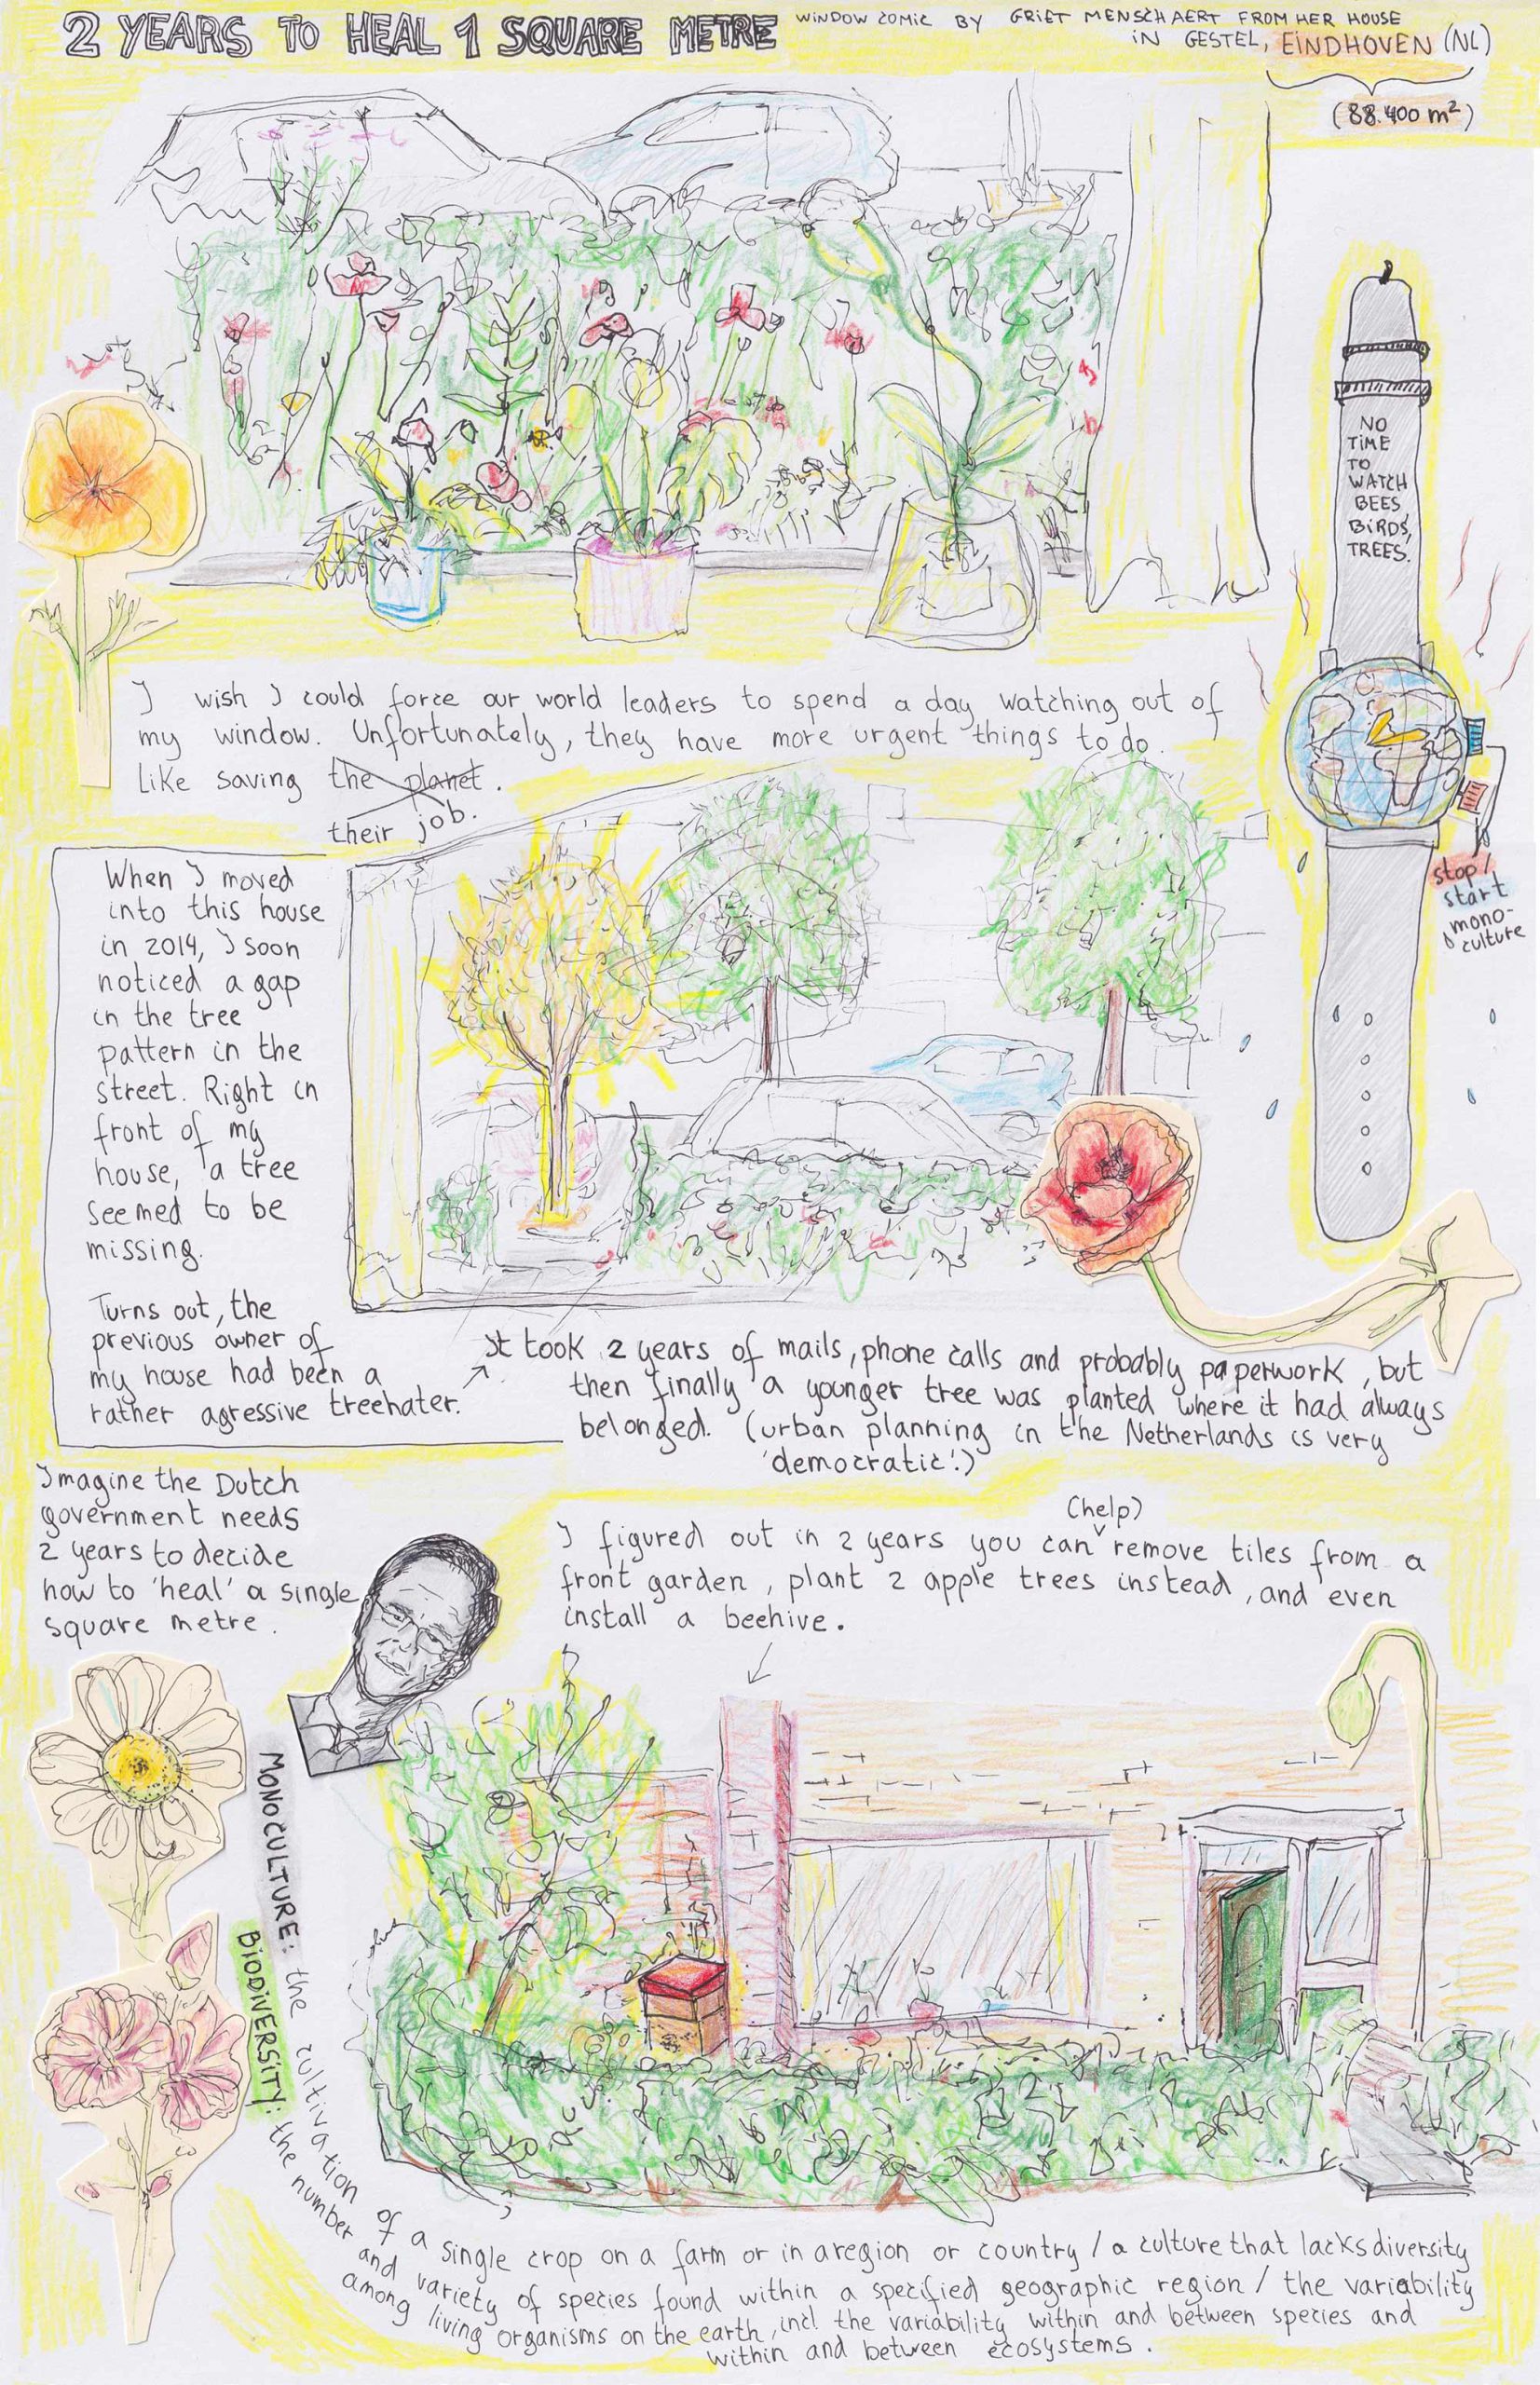 2 YEARS TO HEAL 1 SQUARE METRE
WINDOW COMIC BY GRIET MENSCHAERT FROM HER HOUSE
IN GESTEL, EINDHOVEN (NL)
(88.400 m²)
NO
TIME
TO
WATCH
BEES,
BIRDS,
TREES.
I wish I could force our world leaders to spend a day watching out of
my window. Unfortunately, they have more urgent things to do.
Like saving the planet.
their job.
stop/
start
mono-
culture
When I moved
into this house
in 2014, I soon
noticed a gap
in the tree
pattern in the
street. Right in
front of my
house, a tree
seemed to be
missing.
Turns out, the
previous owner of
my house had been a
rather agressive treehater.
It took 2 years of mails, phone calls and probably paperwork, but
then finally a younger tree was planted where it had always
belonged. (urban planning in the Netherlands is very
'democratic'.)
Imagine the Dutch
government needs
2 years to decide
how to 'heal' a single
square metre.
(help)
I figured out in 2 years you can remove tiles from a
front garden, plant 2 apple trees instead, and even
install a beehive.
MONOCULTURE: the cultivation of a single crop on a farm or in a region or country / a culture that lacks diversity
BIODIVERSITY: the number and variety of species found within a specified geographic region / the variability
among living organisms on the earth, incl. the variability within and between species and
within and between ecosystems.